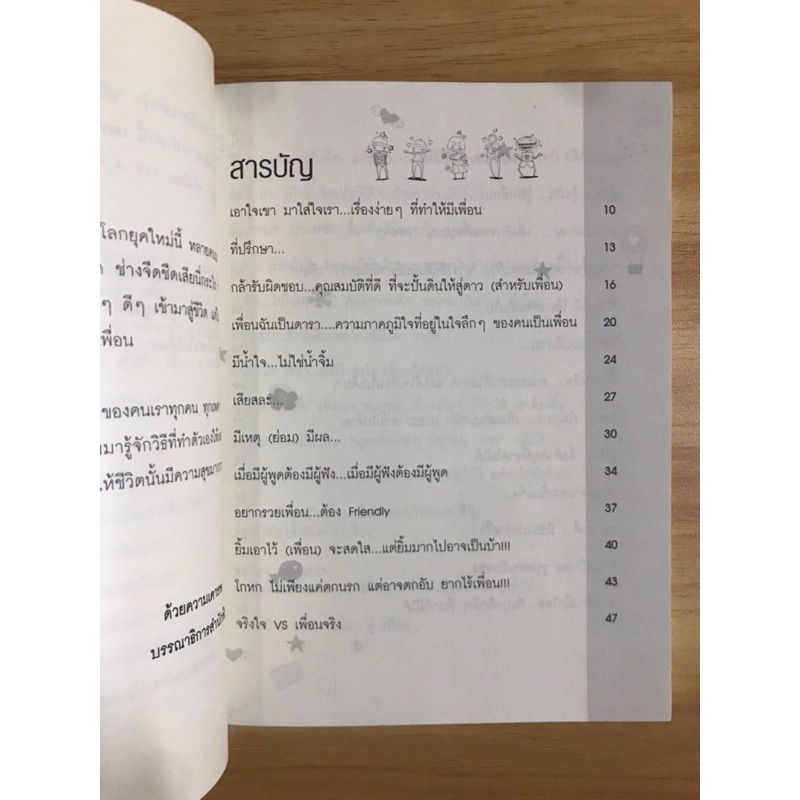 โลกยุคใหม่นี้ หลายคน
ช่างจืดชืดเสียนี่กระไร
ๆ ดีๆ เข้ามาสู่ชีวิต
พื่อน
ของคนเราทุกคน
มารู้จักวิธีที่ทำตัวเองให้
ห้ชีวิตนั้นมีความสุขมาก
ด้วยความเคารพ
บรรณาธิการสำนัก
สารบัญ
เอาใจเขา มาใส่ใจเรา...เรื่องง่ายๆ ที่ทำให้มีเพื่อน 10
ที่ปรึกษา... 13
กล้ารับผิดชอบ...คุณสมบัติที่ดี ที่จะปั้นดินให้สู่ดาว (สำหรับเพื่อน) 16
เพื่อนฉันเป็นดารา....ความภาคภูมิใจที่อยู่ในใจลึกๆ ของคนเป็นเพื่อน 20
มีน้ำใจ...ไม่ใช่น้ำจิ้ม 24
เสียสละ... 27
มีเหตุ (ย่อม) มีผล... 30
เมื่อมีผู้พูดต้องมีผู้ฟัง...เมื่อมีผู้ฟังต้องมีผู้พูด 34
อยากรวยเพื่อน...ต้อง Friendly 37
ยิ้มเอาไว้ (เพื่อน) จะสดใส...แต่ยิ้มมากไปอาจเป็นบ้า!!! 40
โกหก ไม่เพียงแค่ตกนรก แต่อาจตกอับ ยากไร้เพื่อน!!! 43
จริงใจ VS เพื่อนจริง 47